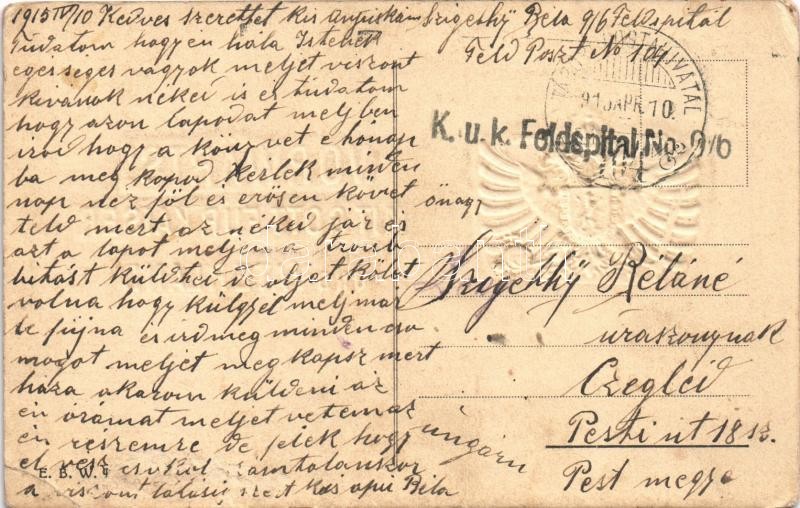 1915 IV/10 Kedves szeretket kis anyuskám
Tudatom hogy en hála Istenek
egesseges vagyok meljet viszont
kivánok néked is es tudatom
hogy azon lapodat meljben
irod hogy a könyvet e honap
ba meg kapod kerlek minden
nap nez föl és erösen követ
teld mert az néked jár és
azt a lapot meljen a
küldted de oljet kölet
volna hogy külgyél melj mar
le fújna és ird meg minden cso
magot meljet meg kapsz mert
haza akarom küldeni az
én óramat meljet vetem az
én részemre de félek hogy
el vesz csokol
a viszont látásig kis apu Béla
Szigethÿ Béla 9/6 Feldspitál
Feld Poszt No 104
TÁBORI POSTAHIVATAL
915 APR. 10.
104
K. u. k. Feldspital No. 9/6
önagy
Szigethÿ Béláné
uraszonynak
Czegléd
Pesti út 18 sz.
Pest megye
Ungárn
E. B. W. I